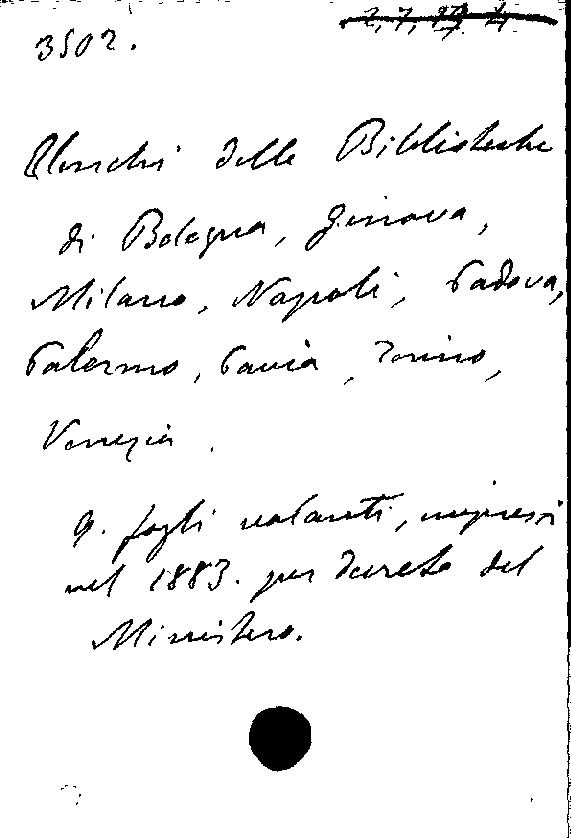 3502.
Elenchi delle Biblioteche
di Bologna, Genova,
Milano, Napoli, Padova,
Palermo, Pavia, Torino,
Venezia.
9. fogli volanti, impressi
nel 1883. per decreto del
Ministero.